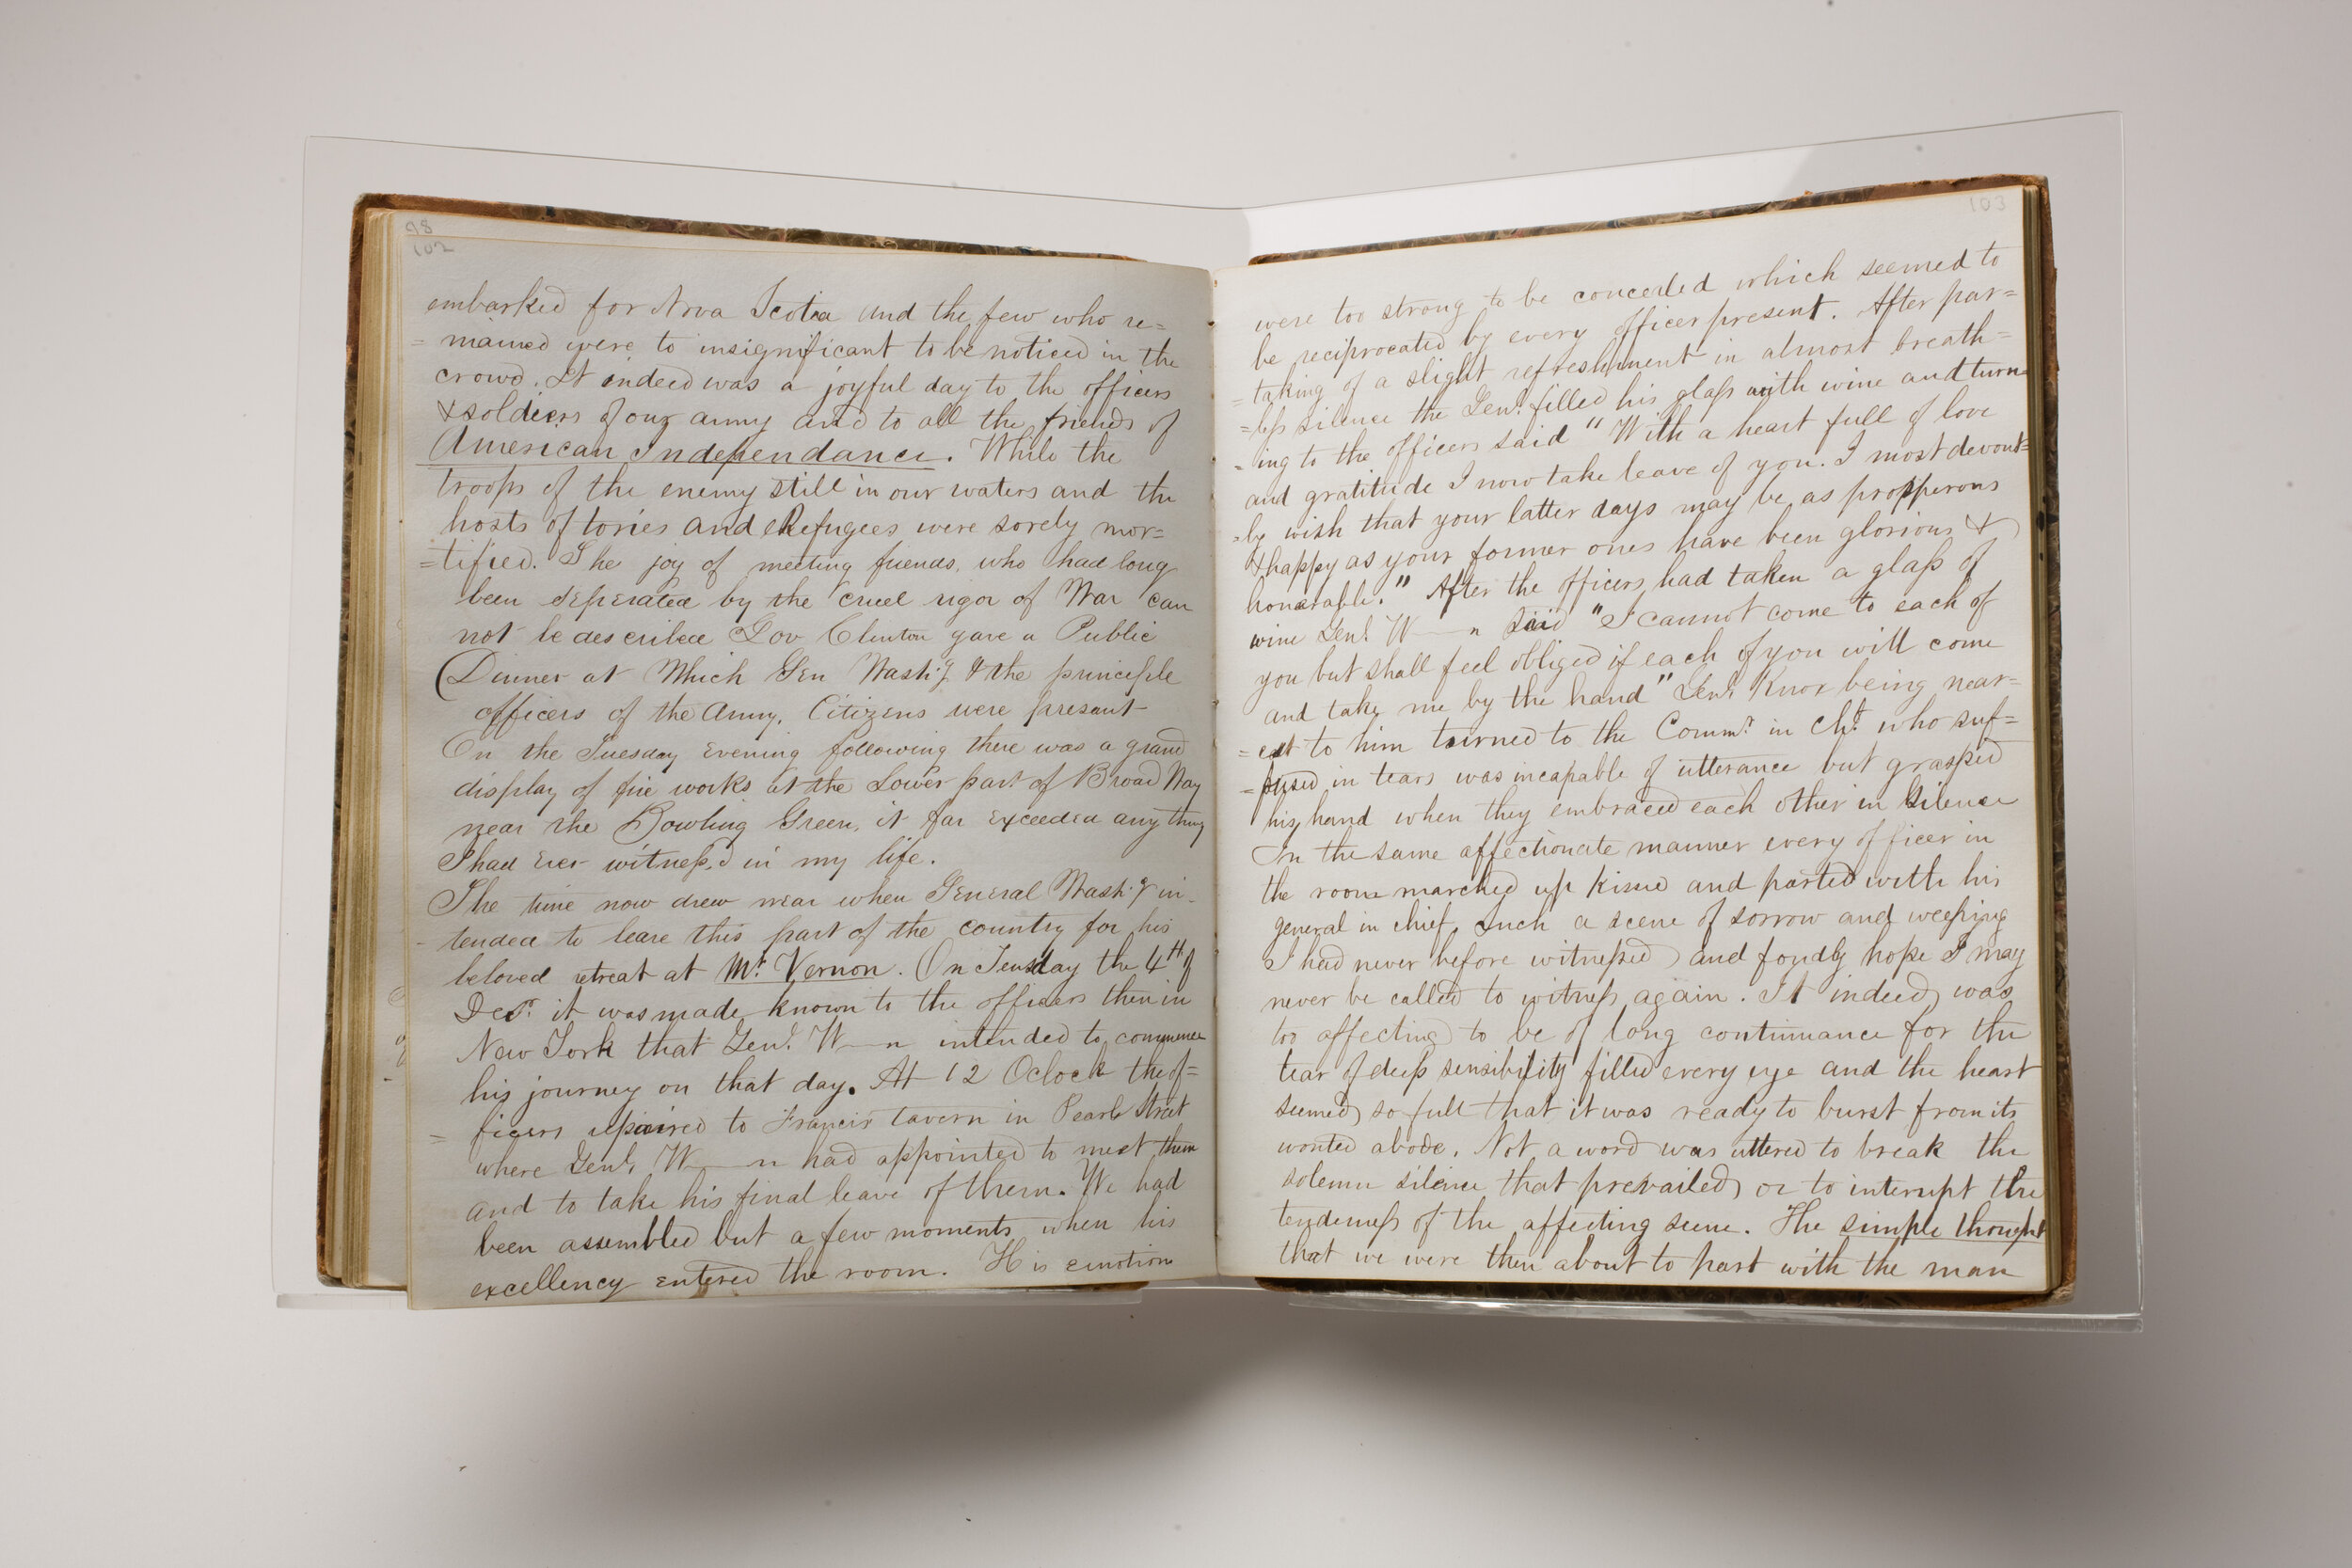 98
102
embarked for Nova Scotia and the few who re=
=mained were to insignificant to be noticed in the
crowd. It indeed was a joyful day to the officers
& soldiers of our army and to all the friends of
American Independance. While the
troops of the enemy still in our waters and the
hosts of tories and Refugees were sorely mor=
=tified. The joy of meeting friends, who had long
been seperated by the cruel rigor of War can
not be described Gov Clinton gave a Public
Dinner at Which Gen Wash.g & the principle
officers of the Army, Citizens were present
On the Tuesday Evening following there was a grand
display of fire works at the Lower part of Broad Way
near the Bowling Green, it far Exceeded any thing
I had Ever witness,d in my life.
The time now drew near when General Wash.g in-
-tended to leave this part of the country for his
beloved retreat at Mt. Vernon. On Teusday the 4th of
Decr. it was made known to the officers then in
New York that Genl. W—n intended to commence
his journey on that day. At 12 Oclock the of=
=ficers repaired to Francis tavern in Pearl Street
where Genl. W—n had appointed to meet them
and to take his final leave of them. We had
been assembled but a few moments when his
excellency entered the room. His emotion
103
were too strong to be concealed which seemed to
be reciprocated by every officer present. After par=
=taking of a slight refreshment in almost breath=
=less silence the Genl. filled his glass with wine and turn
=ing to the officers said "With a heart full of love
and gratitude I now take leave of you. I most devout=
=ly wish that your latter days may be as prosperous
& happy as your former ones have been glorious &
honorable." After the officers had taken a glass of
wine Genl. W—n said "I cannot come to each of
you but shall feel obliged if each of you will come
and take me by the hand" Genl. Knox being near=
=est to him turned to the Commr. in Cht. who suf=
=fused in tears was incapable of utterance but grasped
his hand when they embraced each other in silence
In the same affectionate manner every officer in
the room marched up kissed and parted with his
general in chief. Such a scene of sorrow and weeping
I had never before witnessed and fondly hope I may
never be called to witness again. It indeed was
too affecting to be of long continuance for the
tear of deep sensibility filled every eye and the heart
seemed so full that it was ready to burst from its
wonted abode. Not a word was uttered to break the
solemn silence that prevailed or to interrupt the
tenderness of the affecting scene. The simple thought
that we were then about to part with the man